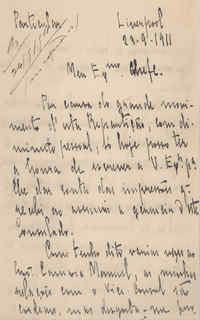 Particular
Liverpool
20-9º-1911
Meu Exmo. Chefe.
Por causa do grande movi-
mento d'esta Repartição, com di-
minuto pessoal, só hoje posso ter
a honra de escrever a V. Exª pª
lhe dar conta das impressões q
recebi ao assumir a gerencia d'este
Consulado.
Como tenho dito, varias vezes ao
Camara Manoel, as minhas
relações com o Vice-Consul são
cordeaes, mas